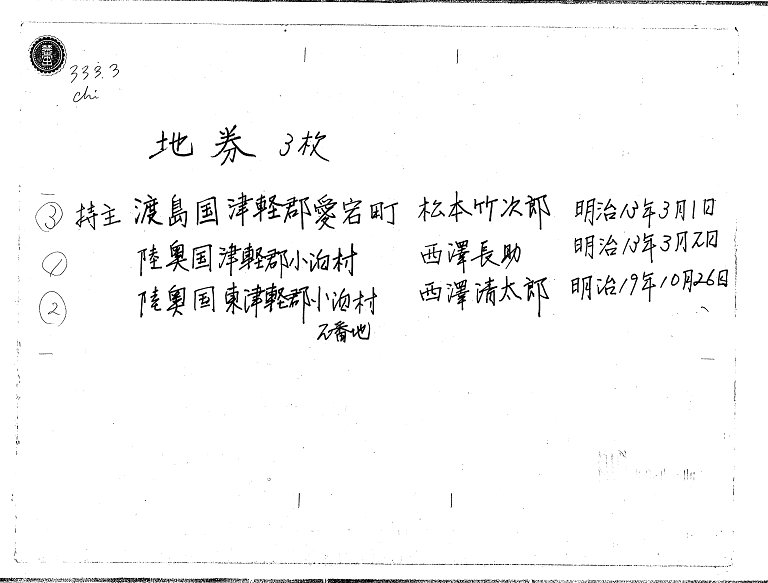 333.3
chi
地券 3枚
③ 持主 渡島国津軽郡愛宕町 松本竹次郎 明治13年3月1日
① 陸奥国津軽郡小泊村 西澤長助 明治13年3月 日
② 陸奥国東津軽郡小泊村 西澤清太郎 明治19年10月26日
番地